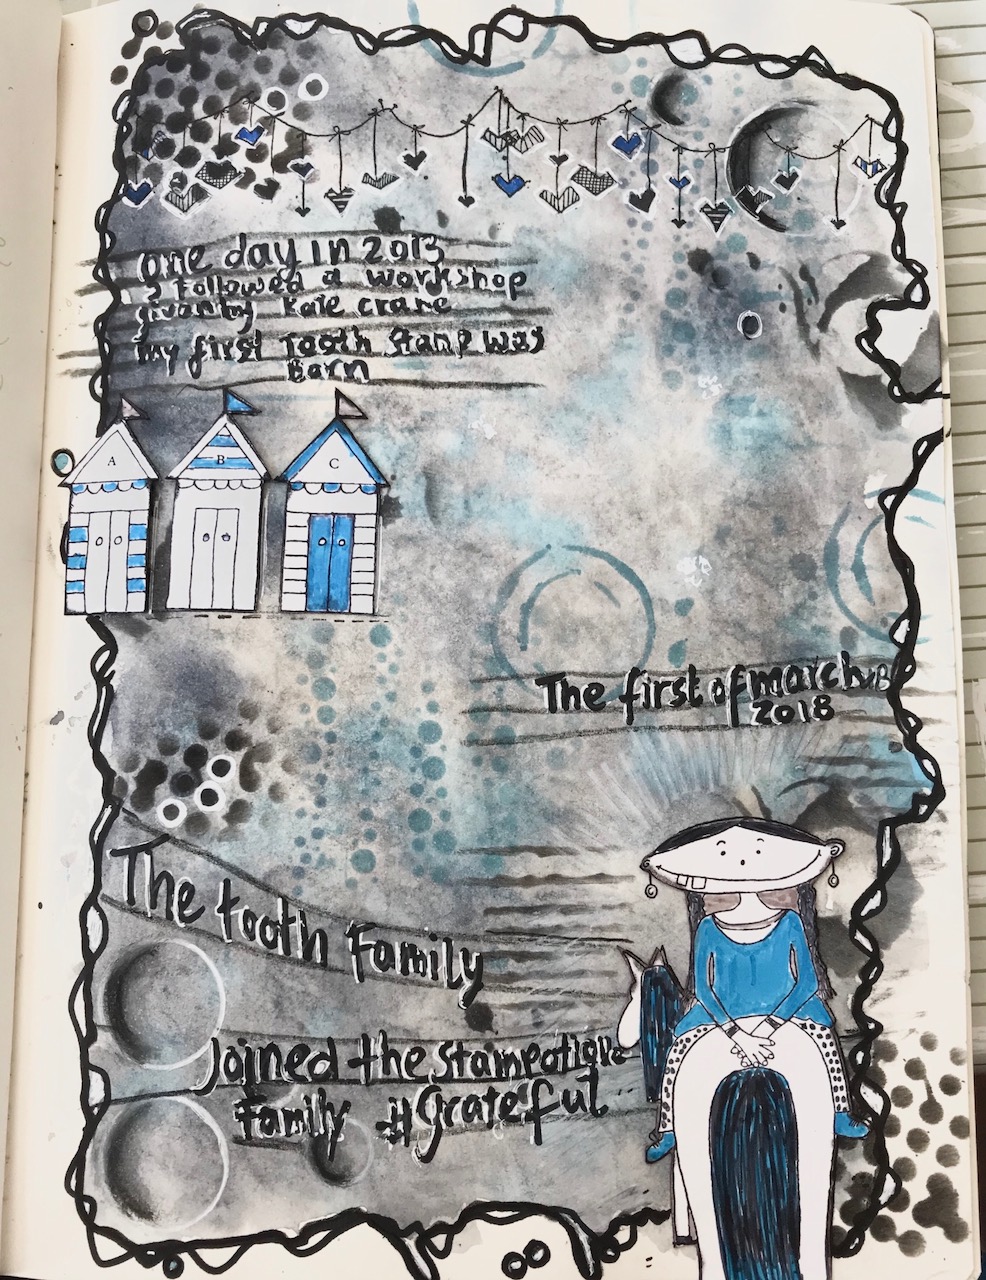 one day in 2013
I followed a workshop
givan by Kate Crane
my first Tooth Stamp was
Barn
A B C
The first of march
2018
The tooth Family
Joined the Stampotique
Family #grateful